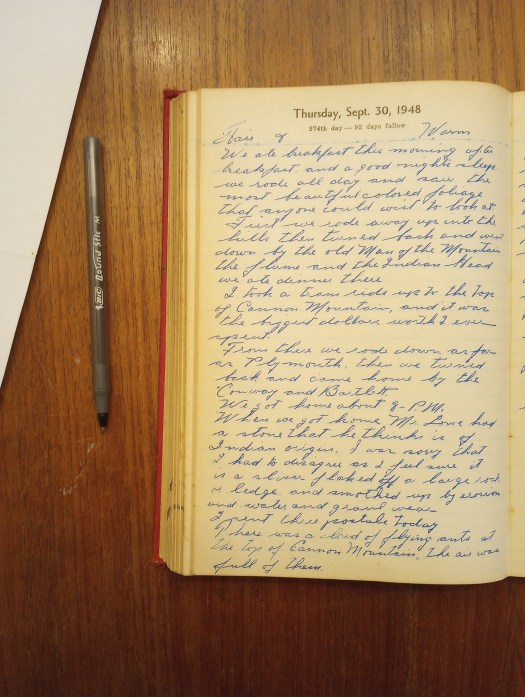 Thursday, Sept. 30, 1948
274th day — 92 days follow
Fair & Warm
We ate breakfast this morning after
breakfast, and a good nights sleep
we rode all day and saw the
most beautiful colored foliage
that anyone could wish to look at
First we rode away up into the
hills then turned back and went
down by the old Man of the Mountain
the flume and the Indian Head
we ate dinner there
I took a tram ride up to the top
of Cannon Mountain, and it was
the biggest dollars worth I ever
spent.
From there we rode down as far
as Plymouth, then we turned
back and came home by the
Conway and Bartlett.
We got home about 8-P.M.
When we got home Mr. Lowe had
a stone that he thinks is of
Indian origin. I was sorry that
I had to disagree as I feel sure it
is a sliver flaked off a large rock
or ledge, and smothed up by erosion
and water and gravel wear
I sent three postals today
There was a cloud of flying ants at
the top of Cannon Mountain, the air was
full of them.
BIC Round Stic M